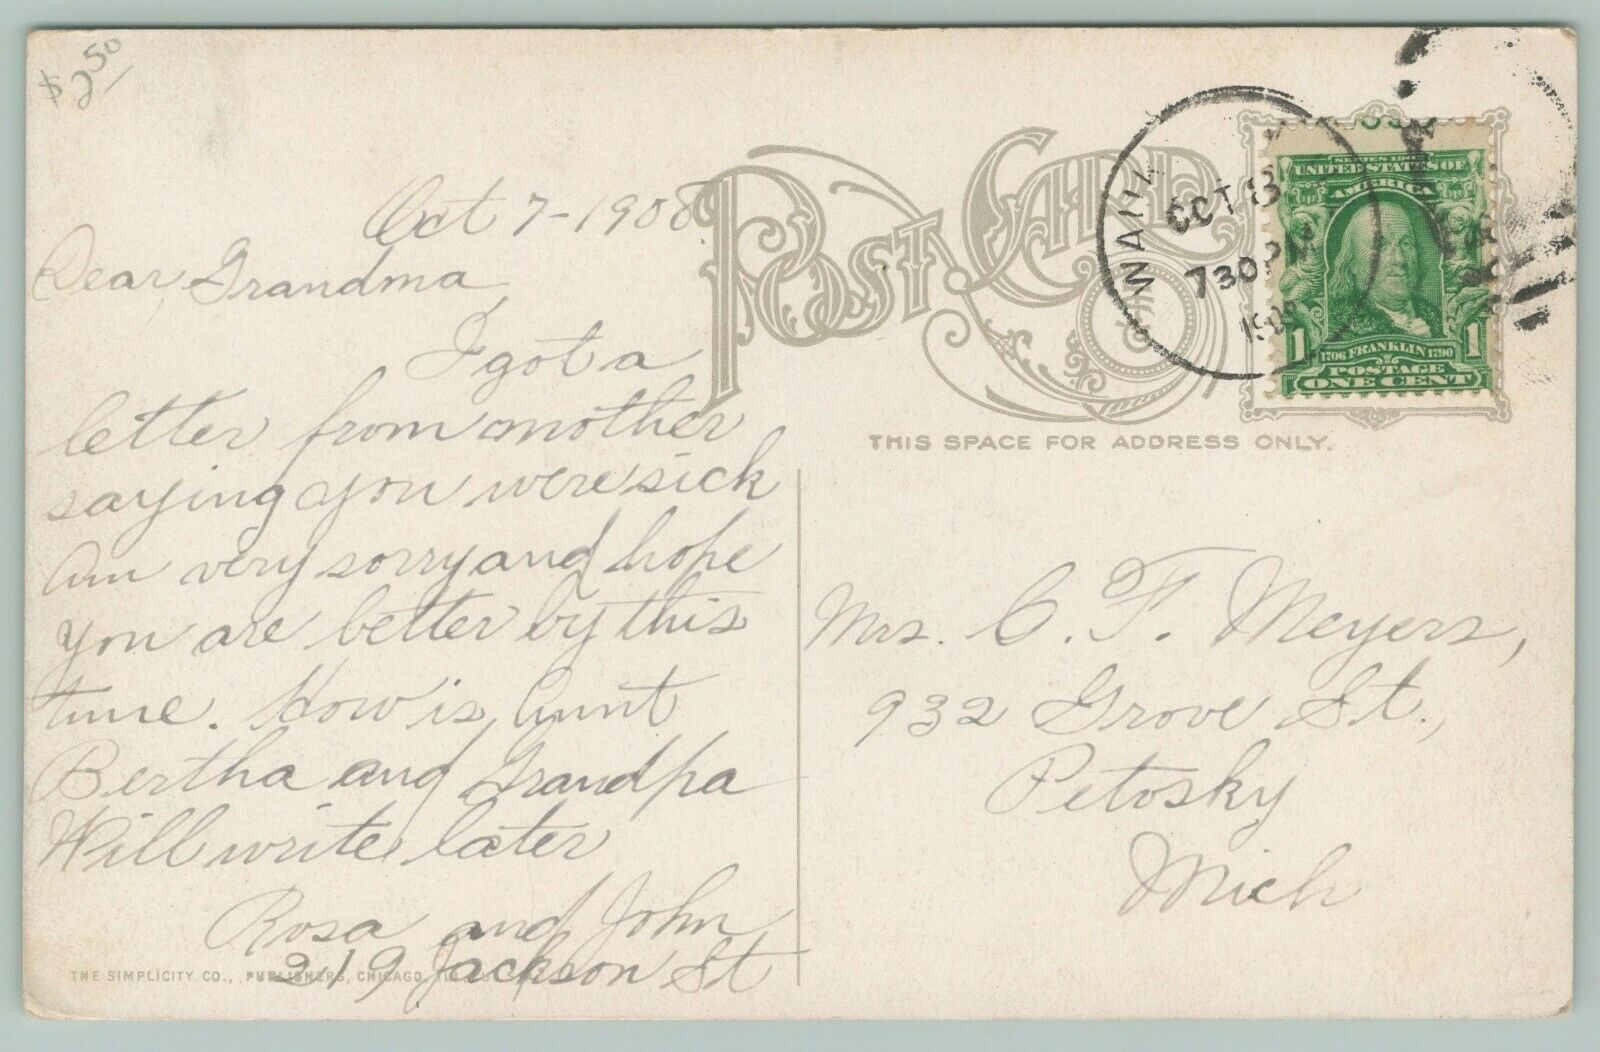 $2.50
Oct 7-1908
Dear Grandma,
I got a
letter from mother
saying you were sick
Am very sorry and hope
you are better by this
time. How is Aunt
Bertha and Grandpa
Will write later
Rosa and John
219 Jackson St
THE SIMPLICITY CO., PUBLISHERS, CHICAGO
POST CARD
OCT 8
730 PM
SERIES 1902
UNITED STATES OF
AMERICA
1 1706 FRANKLIN 1790 1
POSTAGE
ONE CENT
THIS SPACE FOR ADDRESS ONLY.
Mrs. C. F. Meyers,
932 Grove St.,
Petosky
Mich